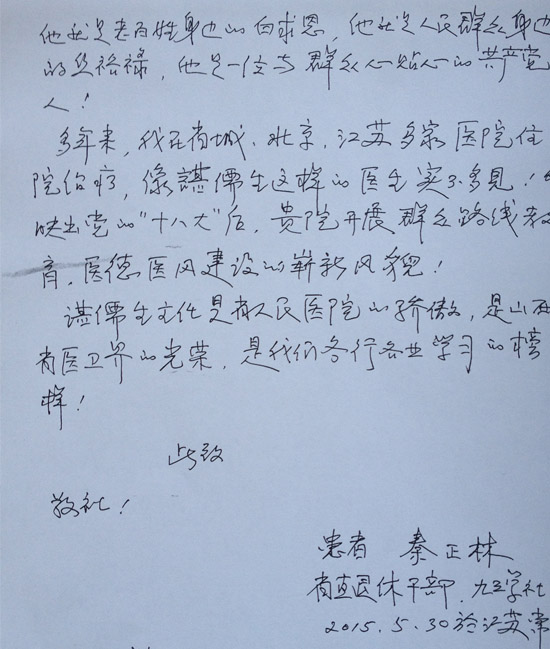 他就是老百姓身边的白求恩，他就是人民群众身边
的焦裕禄，他是一位与群众心贴心的共产党
人！
多年来，我在省城、北京，江苏多家医院住
院治疗，像谌儒生这样的医生实不多见！
映出党的“十八大”后，贵院开展群众路线教
育，医德医风建设的崭新风貌！
谌儒生主任是省人民医院的骄傲，是山西
省医卫界的光荣，是我们各行各业学习的榜
样！
此致
敬礼！
患者 秦正林
省直退休干部、九三学社
2015.5.30於江苏常